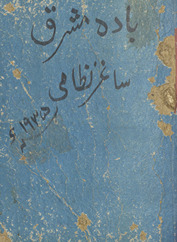 بادہ مشرق
ساغر نظامی
۱۹۳۵ء